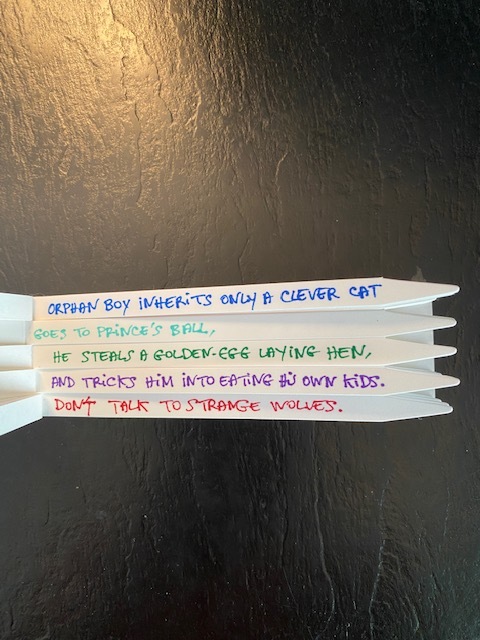 ORPHAN BOY INHERITS ONLY A CLEVER CAT
GOES TO PRINCE'S BALL,
HE STEALS A GOLDEN-EGG LAYING HEN,
AND TRICKS HIM INTO EATING HIS OWN KIDS.
DON'T TALK TO STRANGE WOLVES.